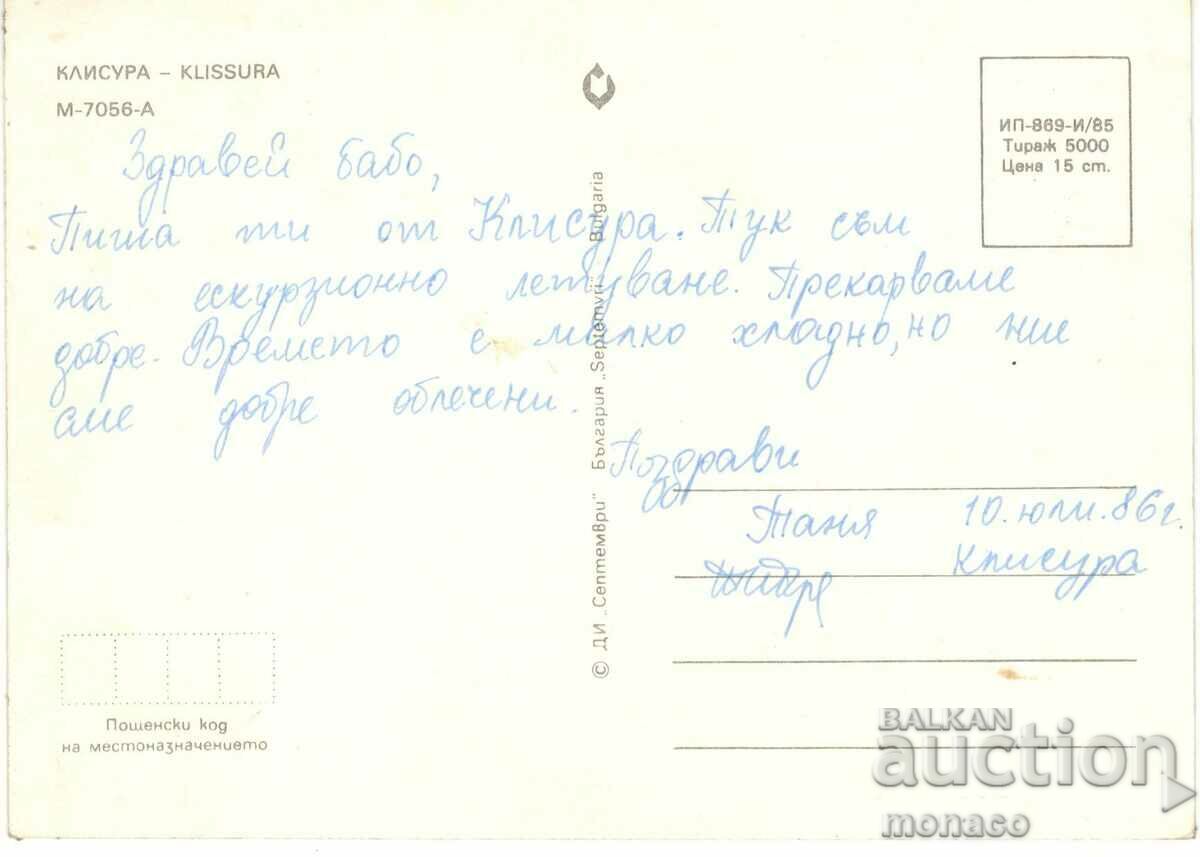 КЛИСУРА – KLISSURA
М-7056-А
ИП-869-И/85
Тираж 5000
Цена 15 ст.
Здравей бабо,
Пиша ти от Клисура. Тук съм
на ескурзионно летуване. Прекарваме
добре. Времето е малко хладно, но ние
сме добре облечени.
Поздрави
Таня 10. юли. 86 г.
Клисура
© ДИ „Септември" България „Septemvri" Bulgaria
Пощенски код
на местоназначението
BALKAN
auction
monaco